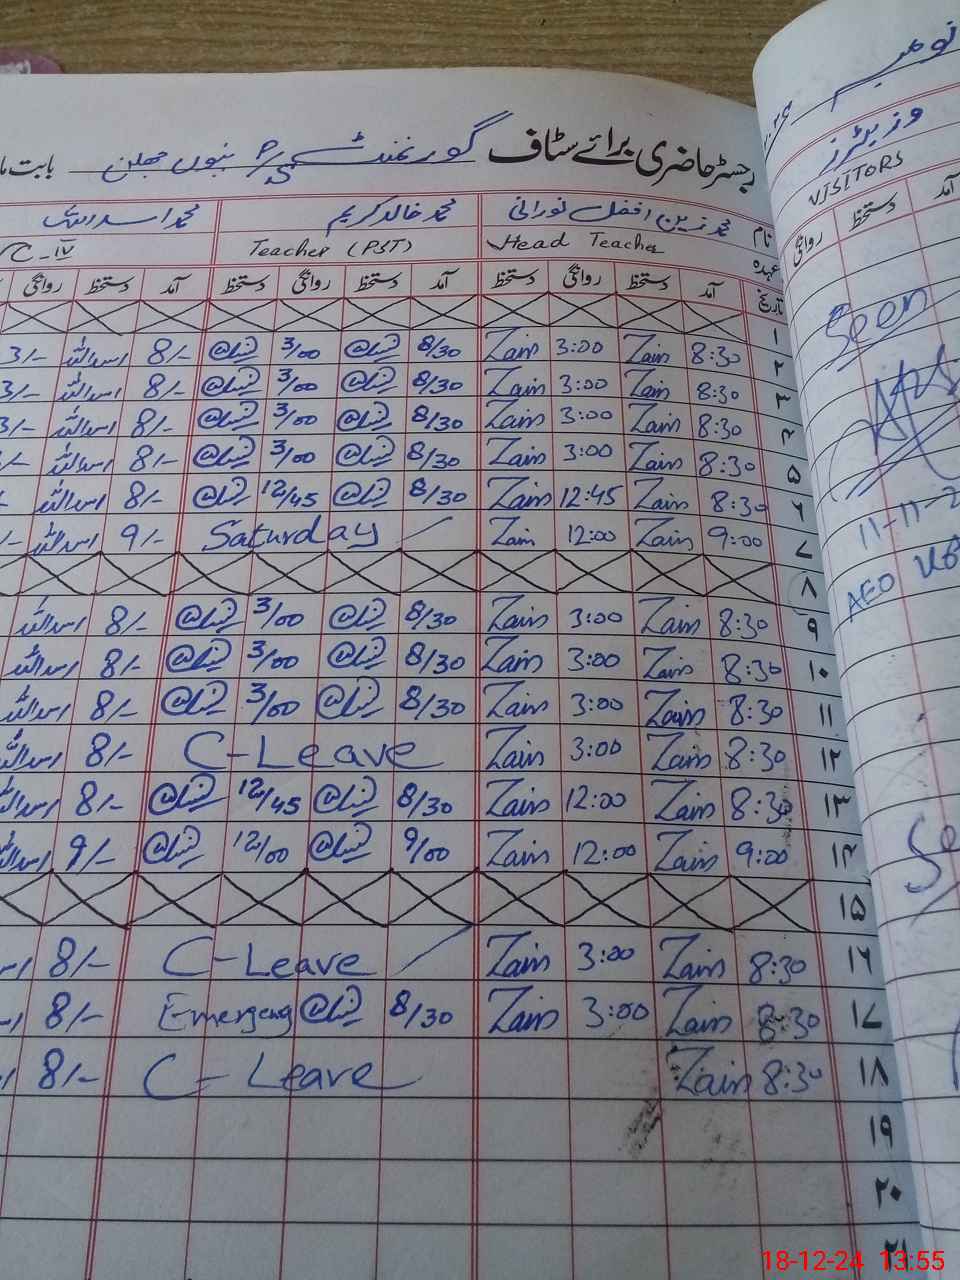 رجسٹر حاضری برائے سٹاف گورنمنٹ بابت
نام محمد زین افضل نورانی محمد خالد کریم محمد اسد اللہ
عہدہ Head Teacher Teacher (PST) C-IV
تاریخ آمد دستخط روانگی دستخط آمد دستخط روانگی دستخط آمد دستخط روانگی
۱
۲ 8:30 Zain 3:00 Zain 8/30 3/00 8/- اسد اللہ 3/-
۳ 8:30 Zain 3:00 Zain 8/30 3/00 8/- اسد اللہ 3/-
۴ 8:30 Zain 3:00 Zain 8/30 3/00 8/- اسد اللہ 3/-
۵ 8:30 Zain 3:00 Zain 8/30 3/00 8/- اسد اللہ
۶ 8:30 Zain 12:45 Zain 8/30 12/45 8/- اسد اللہ
۷ 9:00 Zain 12:00 Zain Saturday 9/- اسد اللہ
۸
۹ 8:30 Zain 3:00 Zain 8/30 3/00 8/- اسد اللہ
۱۰ 8:30 Zain 3:00 Zain 8/30 3/00 8/- اسد اللہ
۱۱ 8:30 Zain 3:00 Zain 8/30 3/00 8/- اسد اللہ
۱۲ 8:30 Zain 3:00 Zain C-Leave 8/- اسد اللہ
۱۳ 8:30 Zain 12:00 Zain 8/30 12/45 8/- اسد اللہ
۱۴ 9:00 Zain 12:00 Zain 9/00 12/00 9/- اسد اللہ
۱۵
۱۶ 8:30 Zain 3:00 Zain C-Leave 8/-
۱۷ 8:30 Zain 3:00 Zain 8/30 8/-
۱۸ 8:30 Zain C-Leave 8/-
۱۹
۲۰
۲۱
نومبر
وزیٹرز
VISITORS
آمد دستخط روانگی
Seen
11-11-2
AEO
Se
18-12-24 13:55